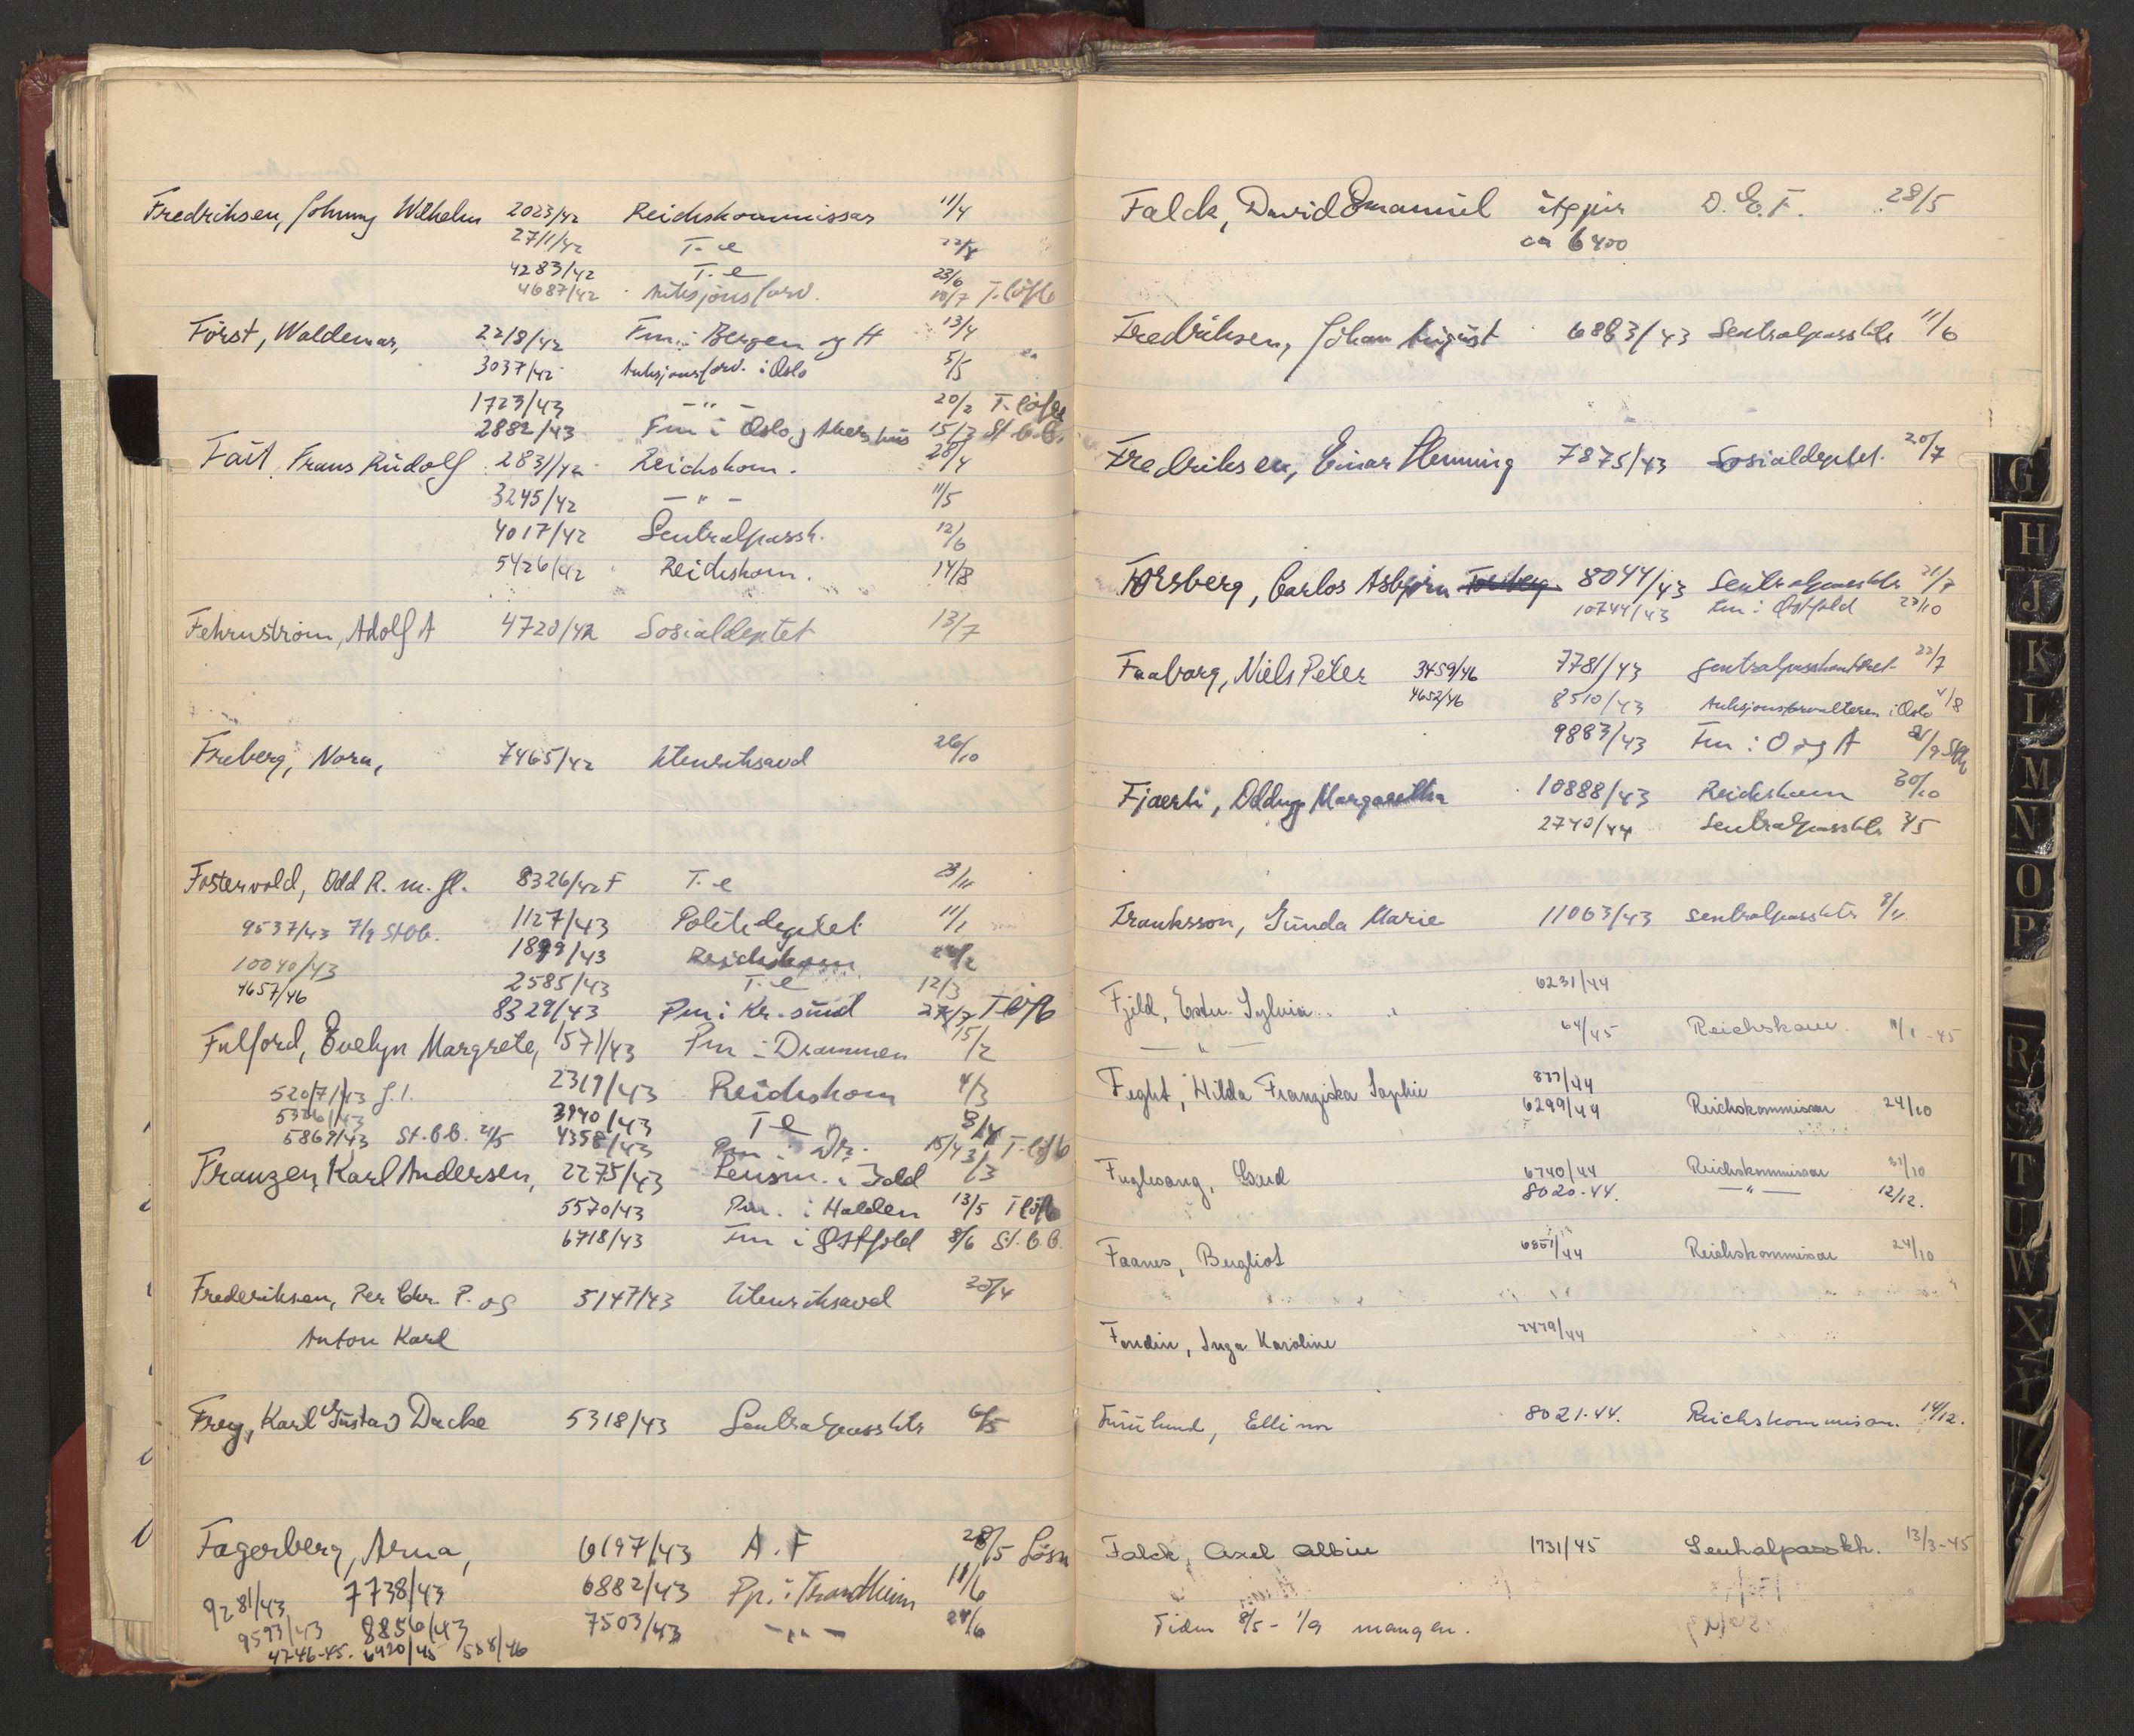 Fredriksen, Johnny Wilhelm 2023/42 Reichskommissar 11/4
2711/42 T. e 22/4
4283/42 T. e 23/6
4687/42 Auksjonsforv. 10/7 T. löfb
Först, Waldemar, 2218/42 Fm. i Bergen og H 13/4
3037/42 Auksjonsforv. i Oslo 5/5
1723/43 - " - 20/2 T. löfb
2882/43 Fm i Oslo og Akershus 15/3 St. b.b.
Fait, Frans Rudolf 2831/42 Reichskom. 28/4
3245/42 - " - 11/5
4017/42 Sentralpassk. 12/6
5426/42 Reichskom. 14/8
Fehrnström, Adolf A 4720/42 Sosialdeptet 13/7
Freberg, Nora, 7465/42 Utenriksavd 26/10
Fostervold, Odd R. m. fl. 8326/42 F T. e 23/11
9537/43 7/9 St.b.b. 1127/43 Politideptet 11/1
10040/43 1899/43 Reichskom
4657/46 2585/43 T. e 12/3
8329/43 Pm i Kr. sund 27/7 T löfb
Fulford, Evelyn Margrete, 1571/43 Pm i Drammen 15/2
5207/43 J.l. 2319/43 Reichskom 4/3
5326/43 3940/43 T e 8/4
5869/43 St.b.b. 21/5 4358/43 Pm i Dr. 15/4 T. löfb
Franzen, Karl Andersen, 2275/43 Lensm. i Idd 3/3
5570/43 Pm. i Halden 13/5 T löfb
6718/43 Fm i Østfold 8/6 St. b.b.
Frederiksen, Per Chr. P. og 5147/43 Utenriksavd 28/4
Anton Karl
Frey, Karl Gustav Dacke 5318/43 Sentralpassktr 6/5
Fagerberg, Arna, 6197/43 A. F 28/5 Lösn
9281/43 7738/43 6882/43 Pp. i Trondheim 11/6
9593/43 8856/43 7503/43 - " - 24/6
4746-45. 6920/45 588/46
Falck, David Emanuel utgjir D. E. F. 28/5
ca 6400
Fredriksen, Johan August 6883/43 Sentralpassktr 11/6
Fredriksen, Einar Henning 7875/43 Sosialdeptet. 20/7
Forsberg, Carlos Asbjørn 8044/43 Sentralpassktr 21/7
10744/43 Fm i Østfold 23/10
Faaborg, Niels Peter 3459/46 7781/43 Sentralpasskontoret 22/7
4652/46 8510/43 Auksjonsforvalteren i Oslo 4/8
9883/43 Fm i O og A
Fjaerli, Oddny Margaretha 10888/43 Reichskom 30/10
2740/44 Sentralpassktr 3/5
Franksson, Gunda Marie 11063/43 Sentralpassktr 8/11
Fjeld, Ester Sylvia 6231/44
— " — 64/45 Reichskom. 11/1-45
Feght, Hilda Franziska Sophie 877/44
6299/44 Reichskommissar 24/10
Fuglesang, Gerd 6740/44 Reichskommissar 31/10
8020-44. — " — 12/12.
Faanes, Bergliot 6851/44 Reichskommissar 24/10
Fondin, Inga Karoline 7479/44
Furulund, Ellinor 8021-44. Reichskommissar. 14/12.
Falck, Axel Albin 1731/45 Sentralpasskt. 13/3-45
Tiden 8/5 - 1/9 mangen.